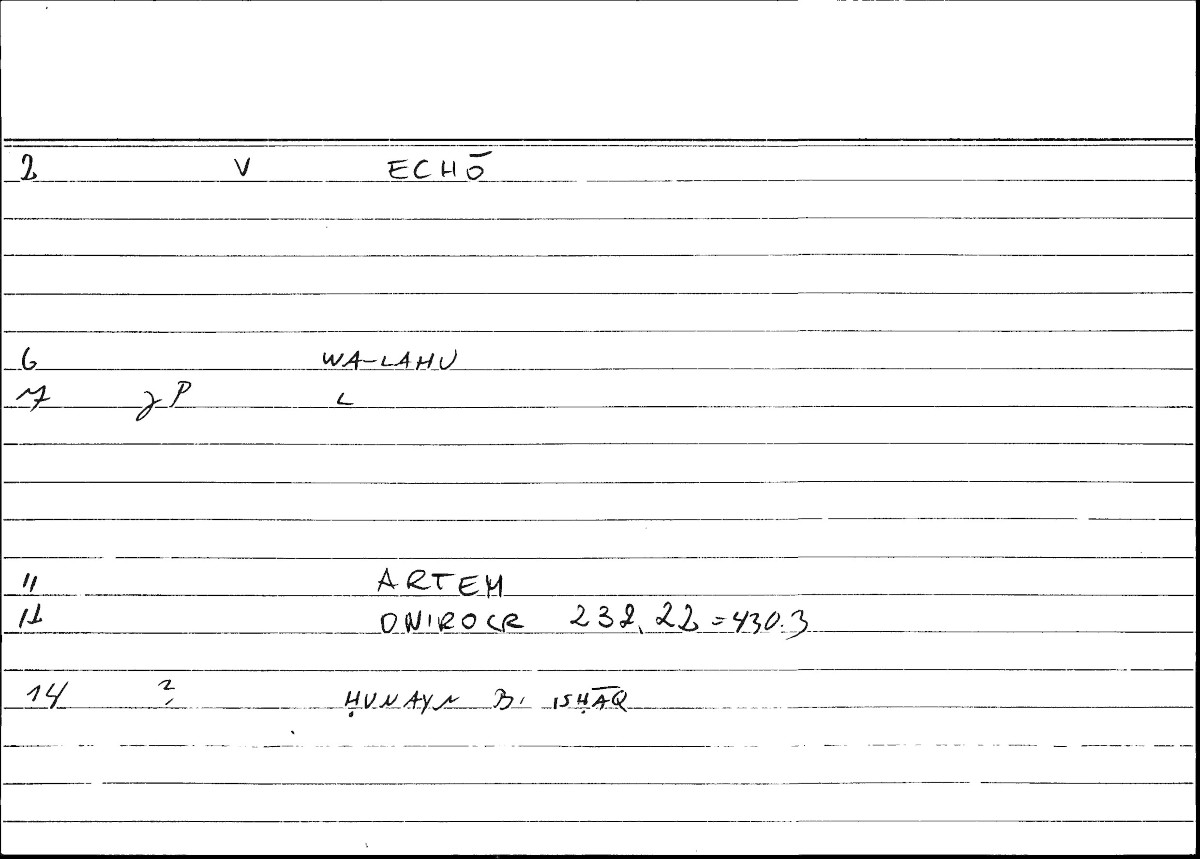 2 V ECHŌ
6 WA-LAHU
7 L
11 ARTEM
12 ONIROCR 232,22=430.3
14 ? ḤUNAYN B. ISḤĀQ